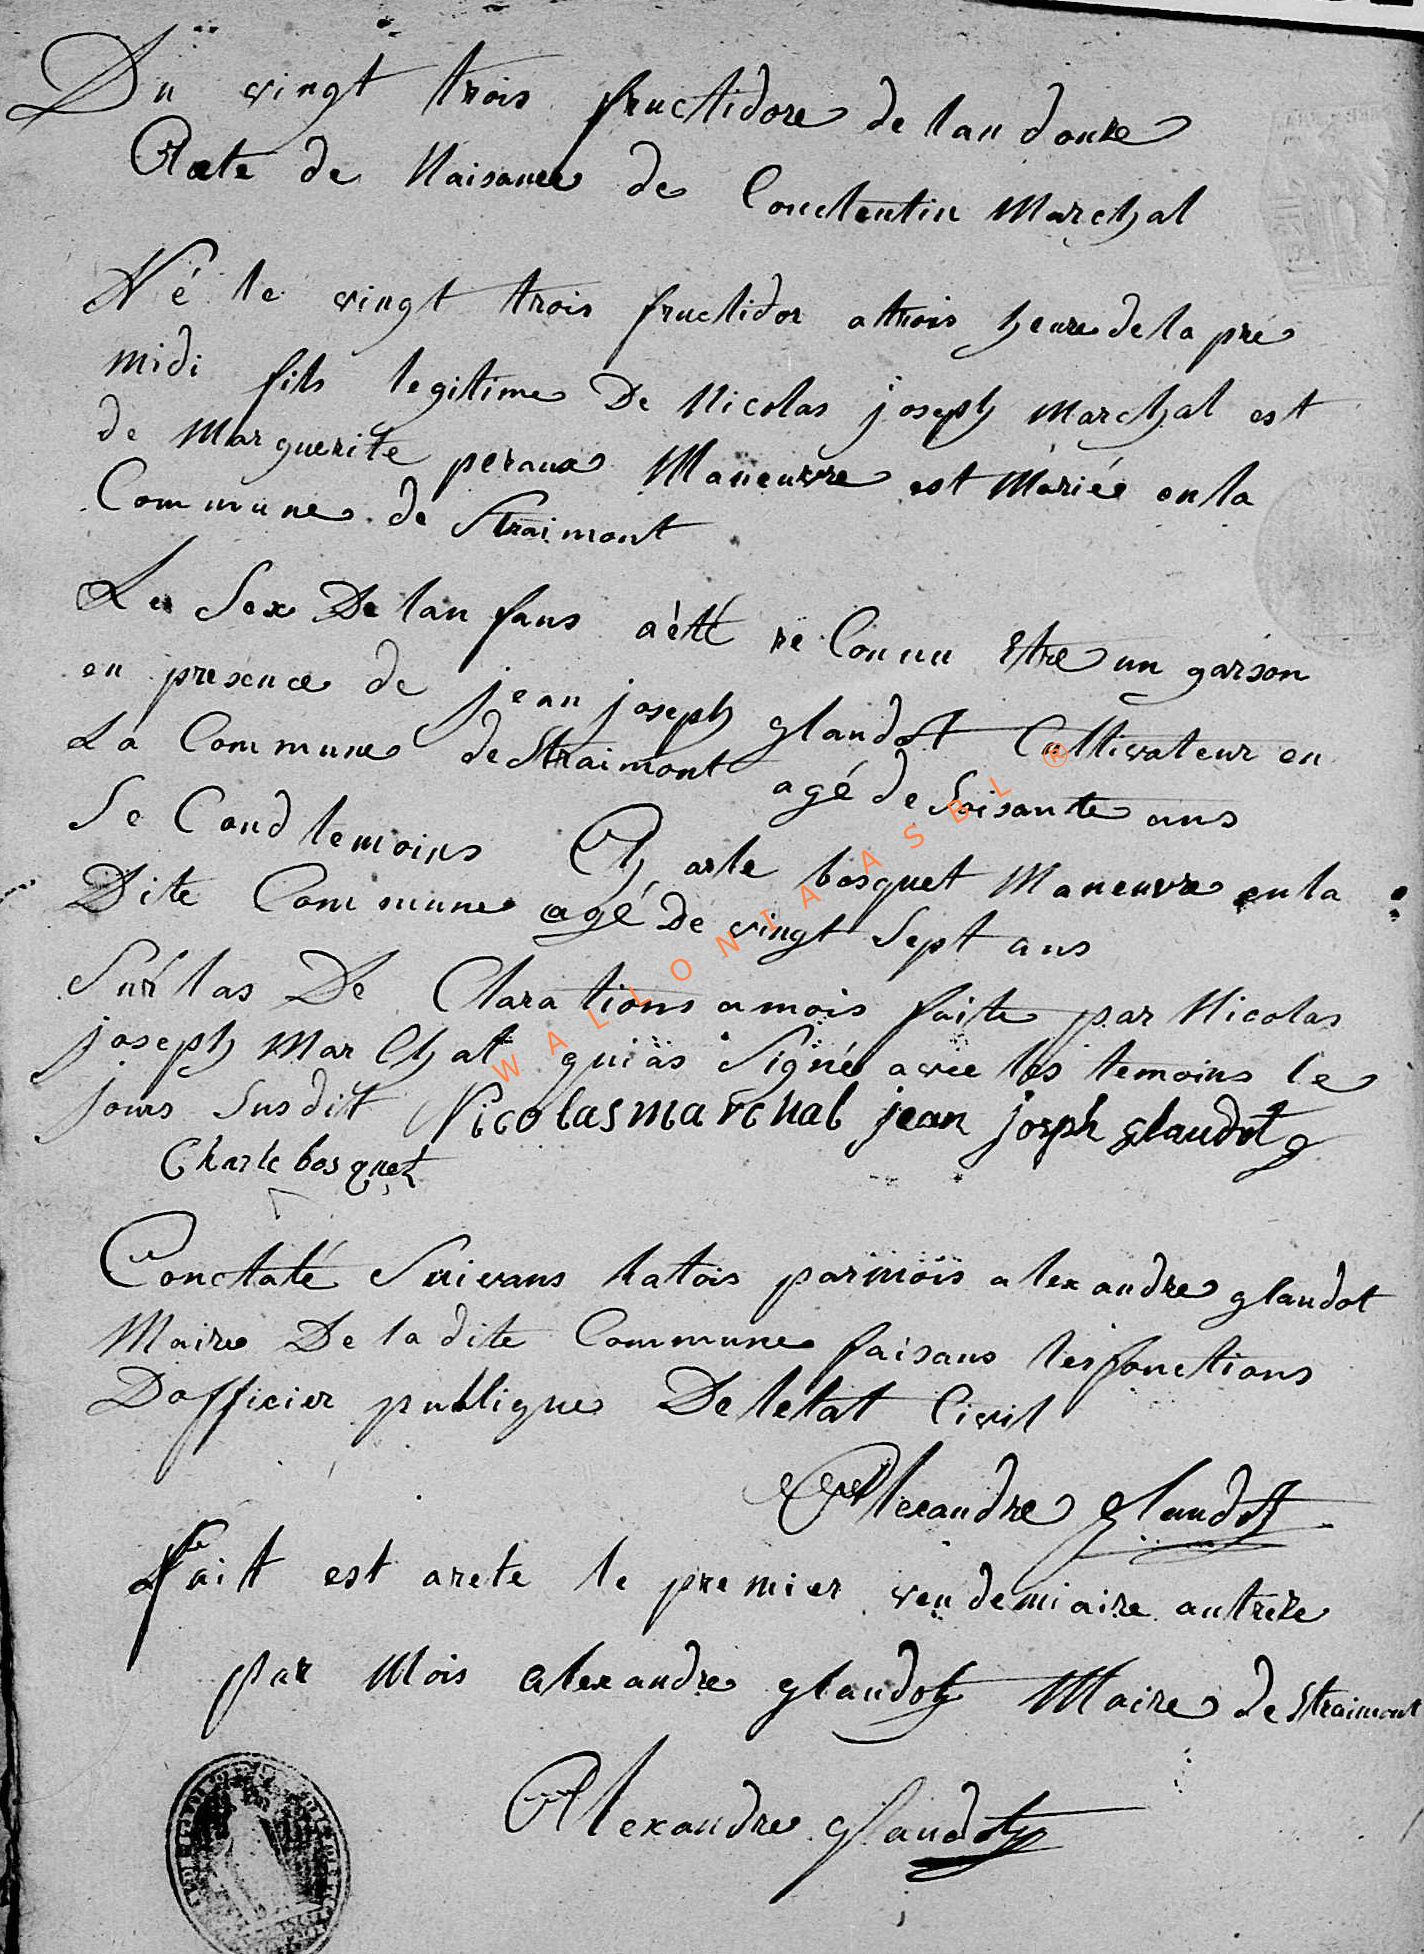 Du vingt trois fructidore de lan douze
Acte de Naisance de Conctentin Marchal
Né le vingt trois fructidor a ttrois heure de la pré
midi fils legitime De Nicolas joseph Marchal est
de Marguerite peraux Maneuvre est Mariée en la
Commune de Straimont
Le Sex De lan fans a été re Connu Etre un garson
en presence de jean joseph glandot Cultivateur en
La Commune de Straimont agé de Soisante ans
Se Cond temoins Charle bosquet Maneuvre en la
Dite Commune agé De vingt Sept ans
Sur las De Clarations a mois faite par Nicolas
joseph Mar Chal qui as Signé avec les temoins le
jours Susdit Nicolas marchal jean joseph glaudot
Charle bosquet
Conctaté Suivans la lois par mois alexandre glaudot
Maire De la dite Commune faisans les fonctions
Dofficier publique De letat Civil
Alexandre glaudot
Fait est arete le premier vendemiaire an treze
par Mois alexandre glaudot Maire de Straimont
Alexandre glaudot
WALLONIA ASBL ®